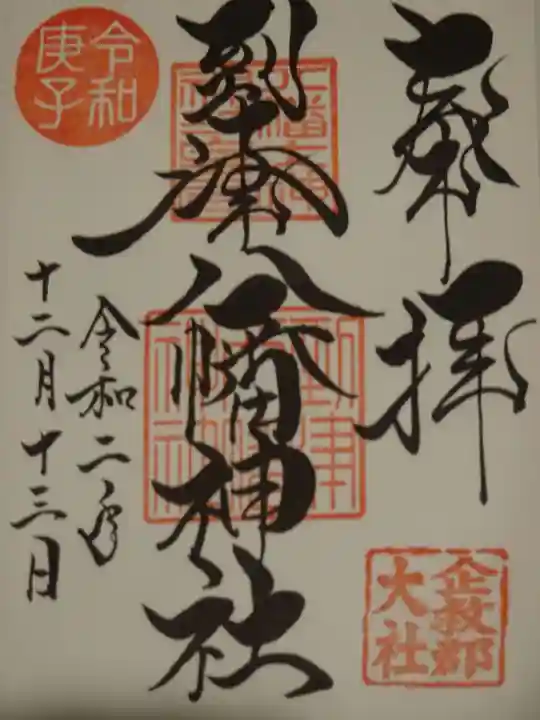 奉拝
企救郡
大社
到津八幡神社
令和二年
十二月十三日
令和
庚子